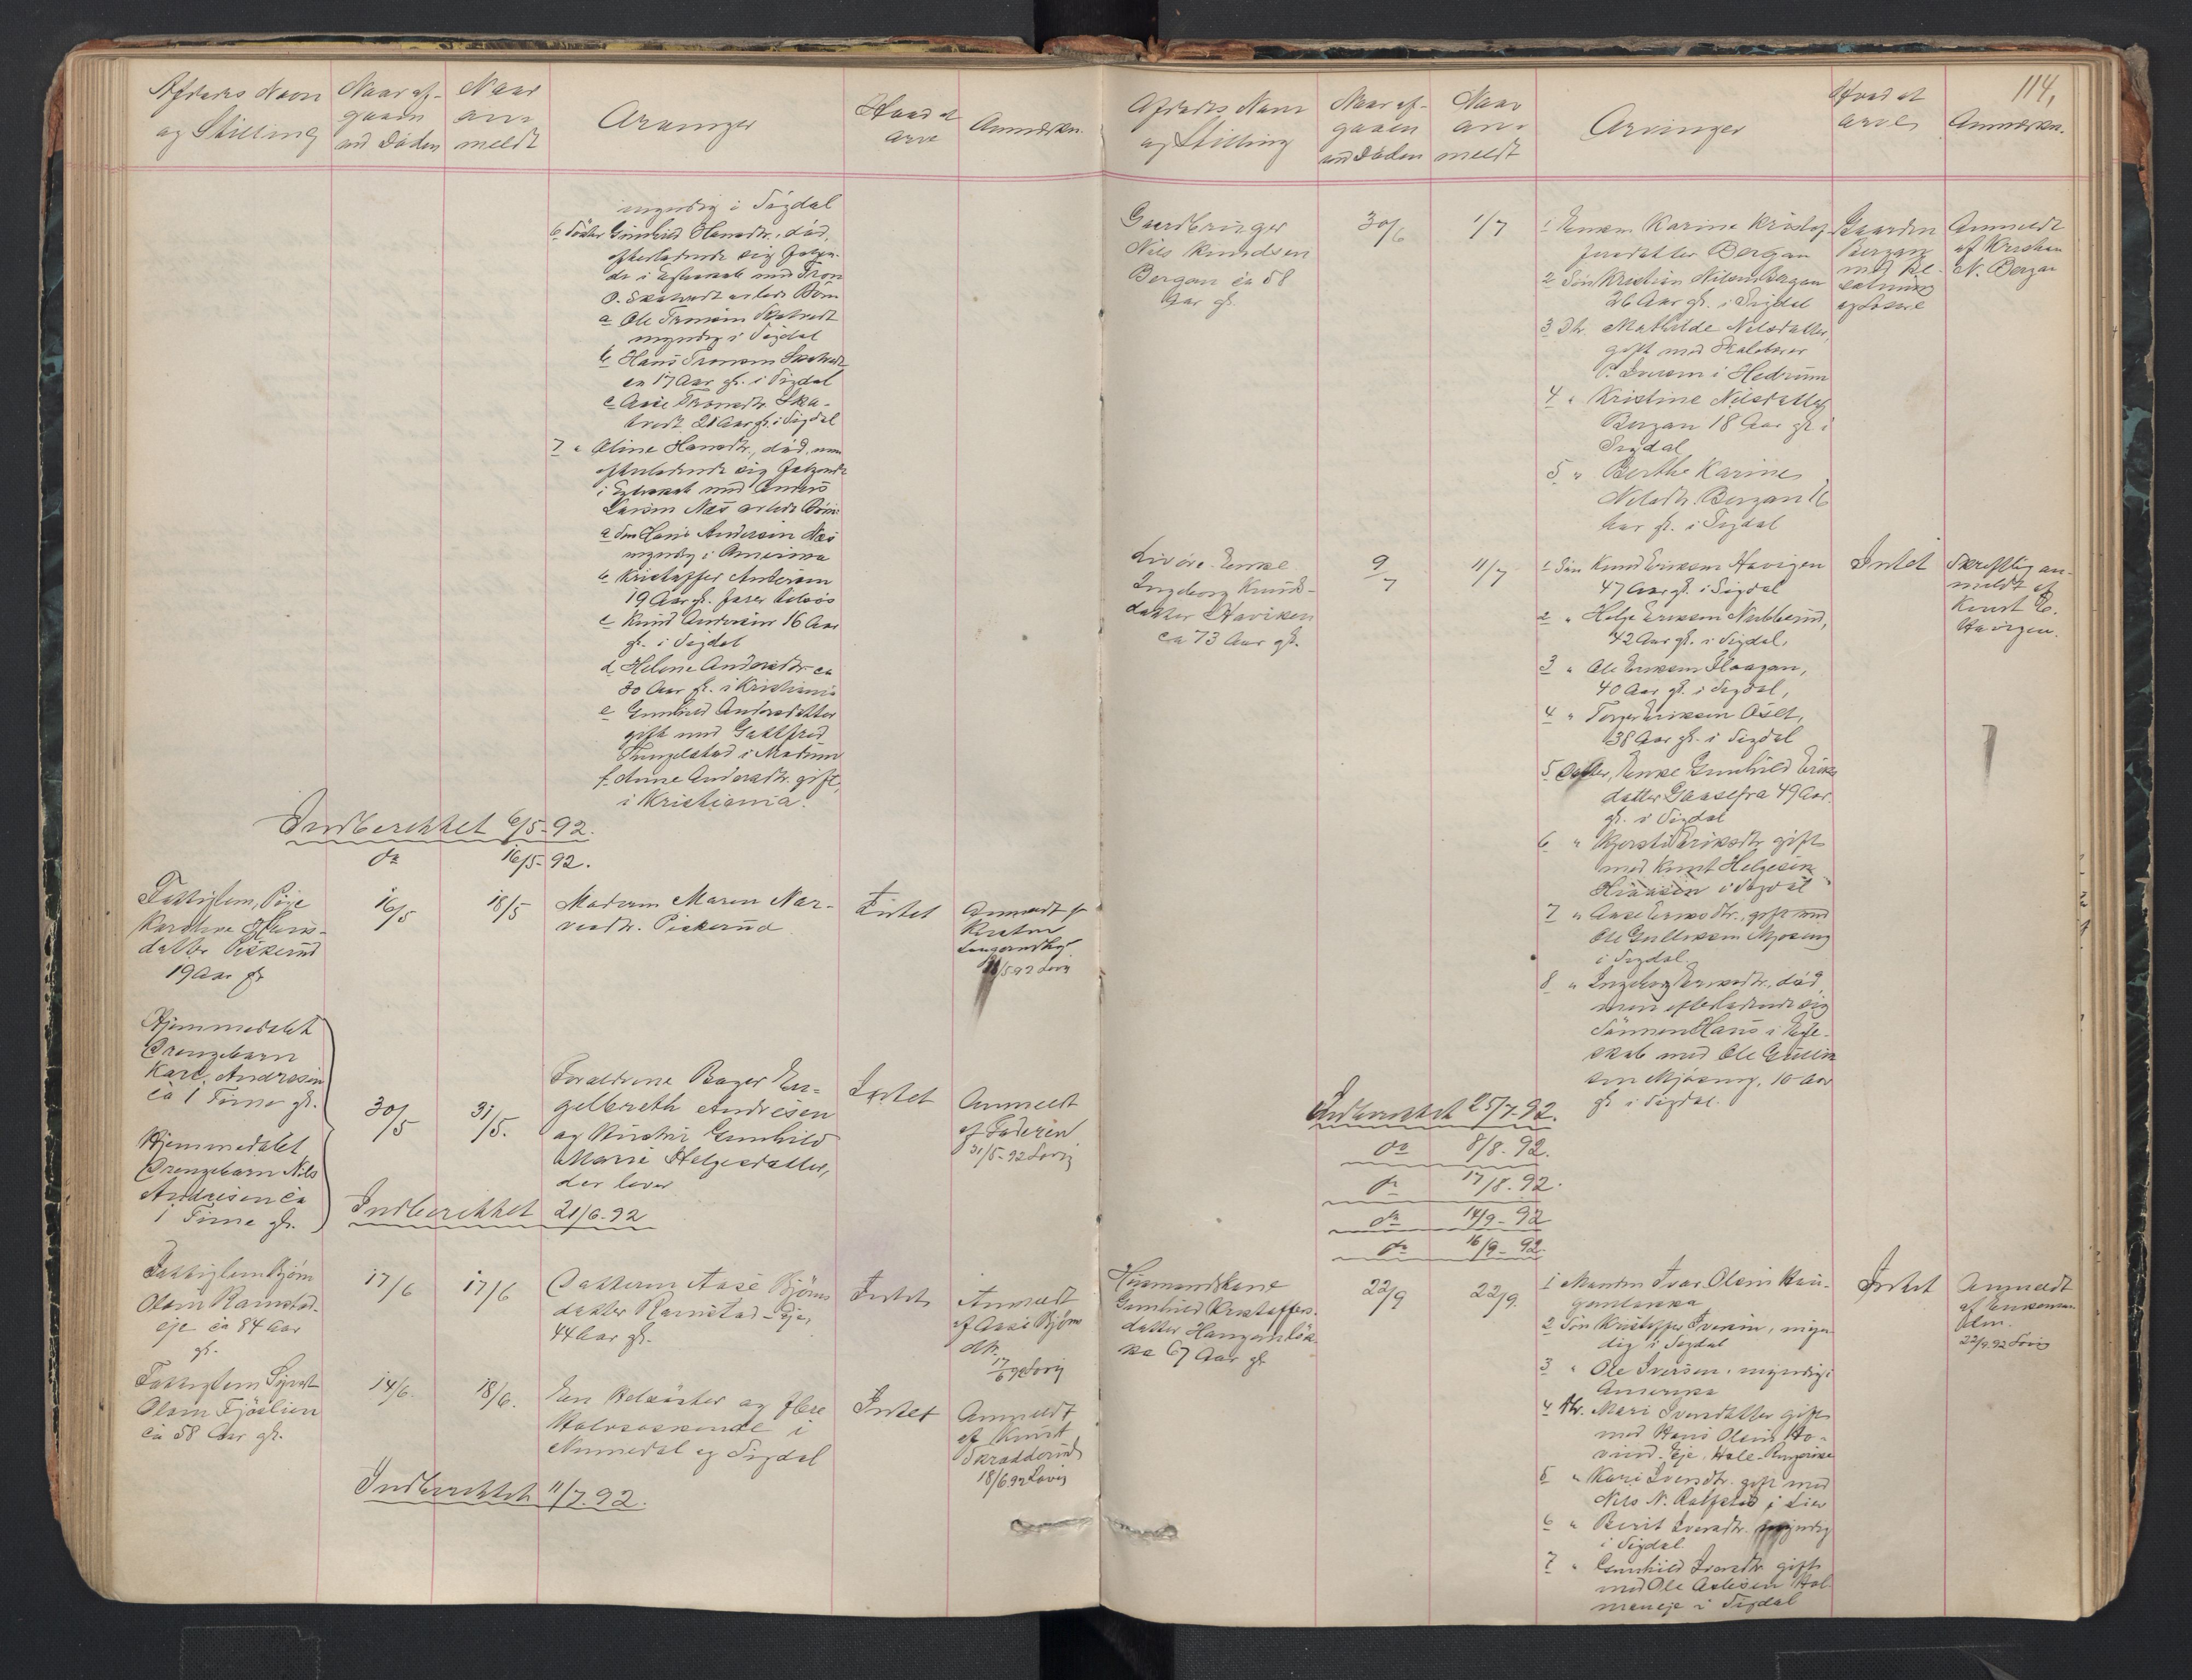 Afdødes Navn
og Stilling
Naar af-
gaaen
ved Døden
Naar
an-
meldt
Arvinger
Hvad et
arve
Anmærkn.
myndig i Sigdal
6 Datter Gunhild Hansdtr., død,
efterladende sig
i Egteskab med Tron
O. Skatvedt avlede Børn
a Ole Tronsen Skatvedt
myndig i Sigdal
b Hans Tronsen Skatvedt
ca 17 Aar gl. i Sigdal
c Aase Tronsdtr. Ska-
tvedt 21 Aar gl. i Sigdal
7 " Oline Hansdtr., død, men
efterladende sig følgende
i Egteskab med Anders
Larsen Næs avlede Børn:
a Søn Hans Andersen Næs
myndig i Amerika
b Kristoffer Andersen
19 Aar gl. farer tilsøs
c Knud Andersen 16 Aar
gl. i Sigdal
d Helene Andersdtr. ca
30 Aar gl. i Kristiania
e Gunhild Andersdatter
gift med Gottfred
i Modum
f Anne Andersdtr. gift,
i Kristiania.
Indberettet 6/5-92.
do 16/5-92.
Fattiglem, Pige
Karoline Hans-
datter Piskerud
19 Aar gl.
16/5
18/5
Moderen Maren Nar-
vesdtr. Piskerud
Intet
Anmeldt
18/5 92
Hjemmedøbt
Drengebarn
Karl Andresen
ca 1 Time gl.
Hjemmedøbt
Drengebarn Nils
Andresen ca
1 Time gl.
30/5
31/5.
Forældrene Bager En-
gelbreth Andresen
og Hustru Gunhild
Marie Helgesdatter,
der lever
Intet
Anmeldt
af Faderen
31/5-92
Indberettet 21/6-92
Fattiglem Bjørn
Olsen Ramstad-
eje ca 84 Aar
gl.
17/6
17/6
Datteren Aase Bjørns
datter Ramstad-Eje,
44 Aar gl.
Intet
Anmeldt
af Aase Bjørns
dtr.
17/6 92
Fattiglem Sigurd
Olsen Fjøslien
ca 58 Aar gl.
14/6.
18/6.
En Helsøster og flere
Halvsøskende i
Numedal og Sigdal
Intet
Anmeldt
af Knut
Skradderud
18/6 92
Indberettet 11/7.92.
114,
Afdødes Navn
og Stilling
Naar af-
gaaen
ved Døden
Naar
an-
meldt
Arvinger
Hvad et
arve
Anmærkn.
Gaardbruger
Nils Knudsen
Bergan ca 58
Aar gl.
30/6
1/7
1 Enken Karine Kristof-
fersdatter Bergan
2 Søn Kristian Nilsen Bergan
26 Aar gl. i Sigdal
3 Dtr. Mathilde Nilsdatter,
gift med Skolelærer
Iversen i Hedrum
4 " Kristine Nilsdatter
Bergan 18 Aar gl. i
Sigdal
5 " Berthe Karine
Nilsdtr. Bergan 16
Aar gl. i Sigdal
Gaarden
Bergan
med Be-
sætning
og Løsøre
Anmeldt
af Kristian
N. Bergan
Enke
Ingeborg Knuds-
datter Haviken
ca 73 Aar gl.
9/7
11/7
1 Søn Knud Eriksen Havigen
47 Aar gl. i Sigdal
2 " Helge Eriksen Nubberud,
42 Aar gl. i Sigdal,
3 " Ole Eriksen Haagan,
40 Aar gl. i Sigdal,
4 " Torger Eriksen Øset,
38 Aar gl. i Sigdal
5 Datter, Enke Gunhild Eriks
datter Gaasefra 49 Aar
gl. i Sigdal
6 " Kjersti Eriksdtr. gift
med Knut Helgesen
i Sigdal
7 " Aase Eriksdtr., gift med
Ole Gulliksen Mjøseng
i Sigdal.
8 " Ingeborg Eriksdtr., død
men efterladende sig
Sønnen Hans i Egte-
skab med Ole Gullik
sen Mjøseng, 10 Aar
gl. i Sigdal.
Intet
Skriftlig an-
meldt af
Knut E.
Havigen.
Indberettet 25/7-92.
do 8/8-92.
do 17/8-92.
do 14/9-92
do 16/9-92.
Husmandskone
Gunhild Kristoffers-
datter Haugenløk-
ka 67 Aar gl.
22/9
22/9.
1 Manden Ivar Olsen Hau-
genløkka
2 Søn Kristoffer Iversen, myn-
dig i Sigdal
3 " Ole Iversen, myndig i
Amerika
4 Dtr. Mari Iversdatter gift
med Hans Olsen Ho-
Eje, Hole, Ringerike
5 " Kari Iversdtr. gift med
Nils N. i Lier
6 " Berit Iversdtr. myndig
i Sigdal
7 " Gunhild Iversdtr. gift
med Ole Aslesen Hol-
meneje i Sigdal
Intet
Anmeldt
af Enkeman-
den.
22/9.92